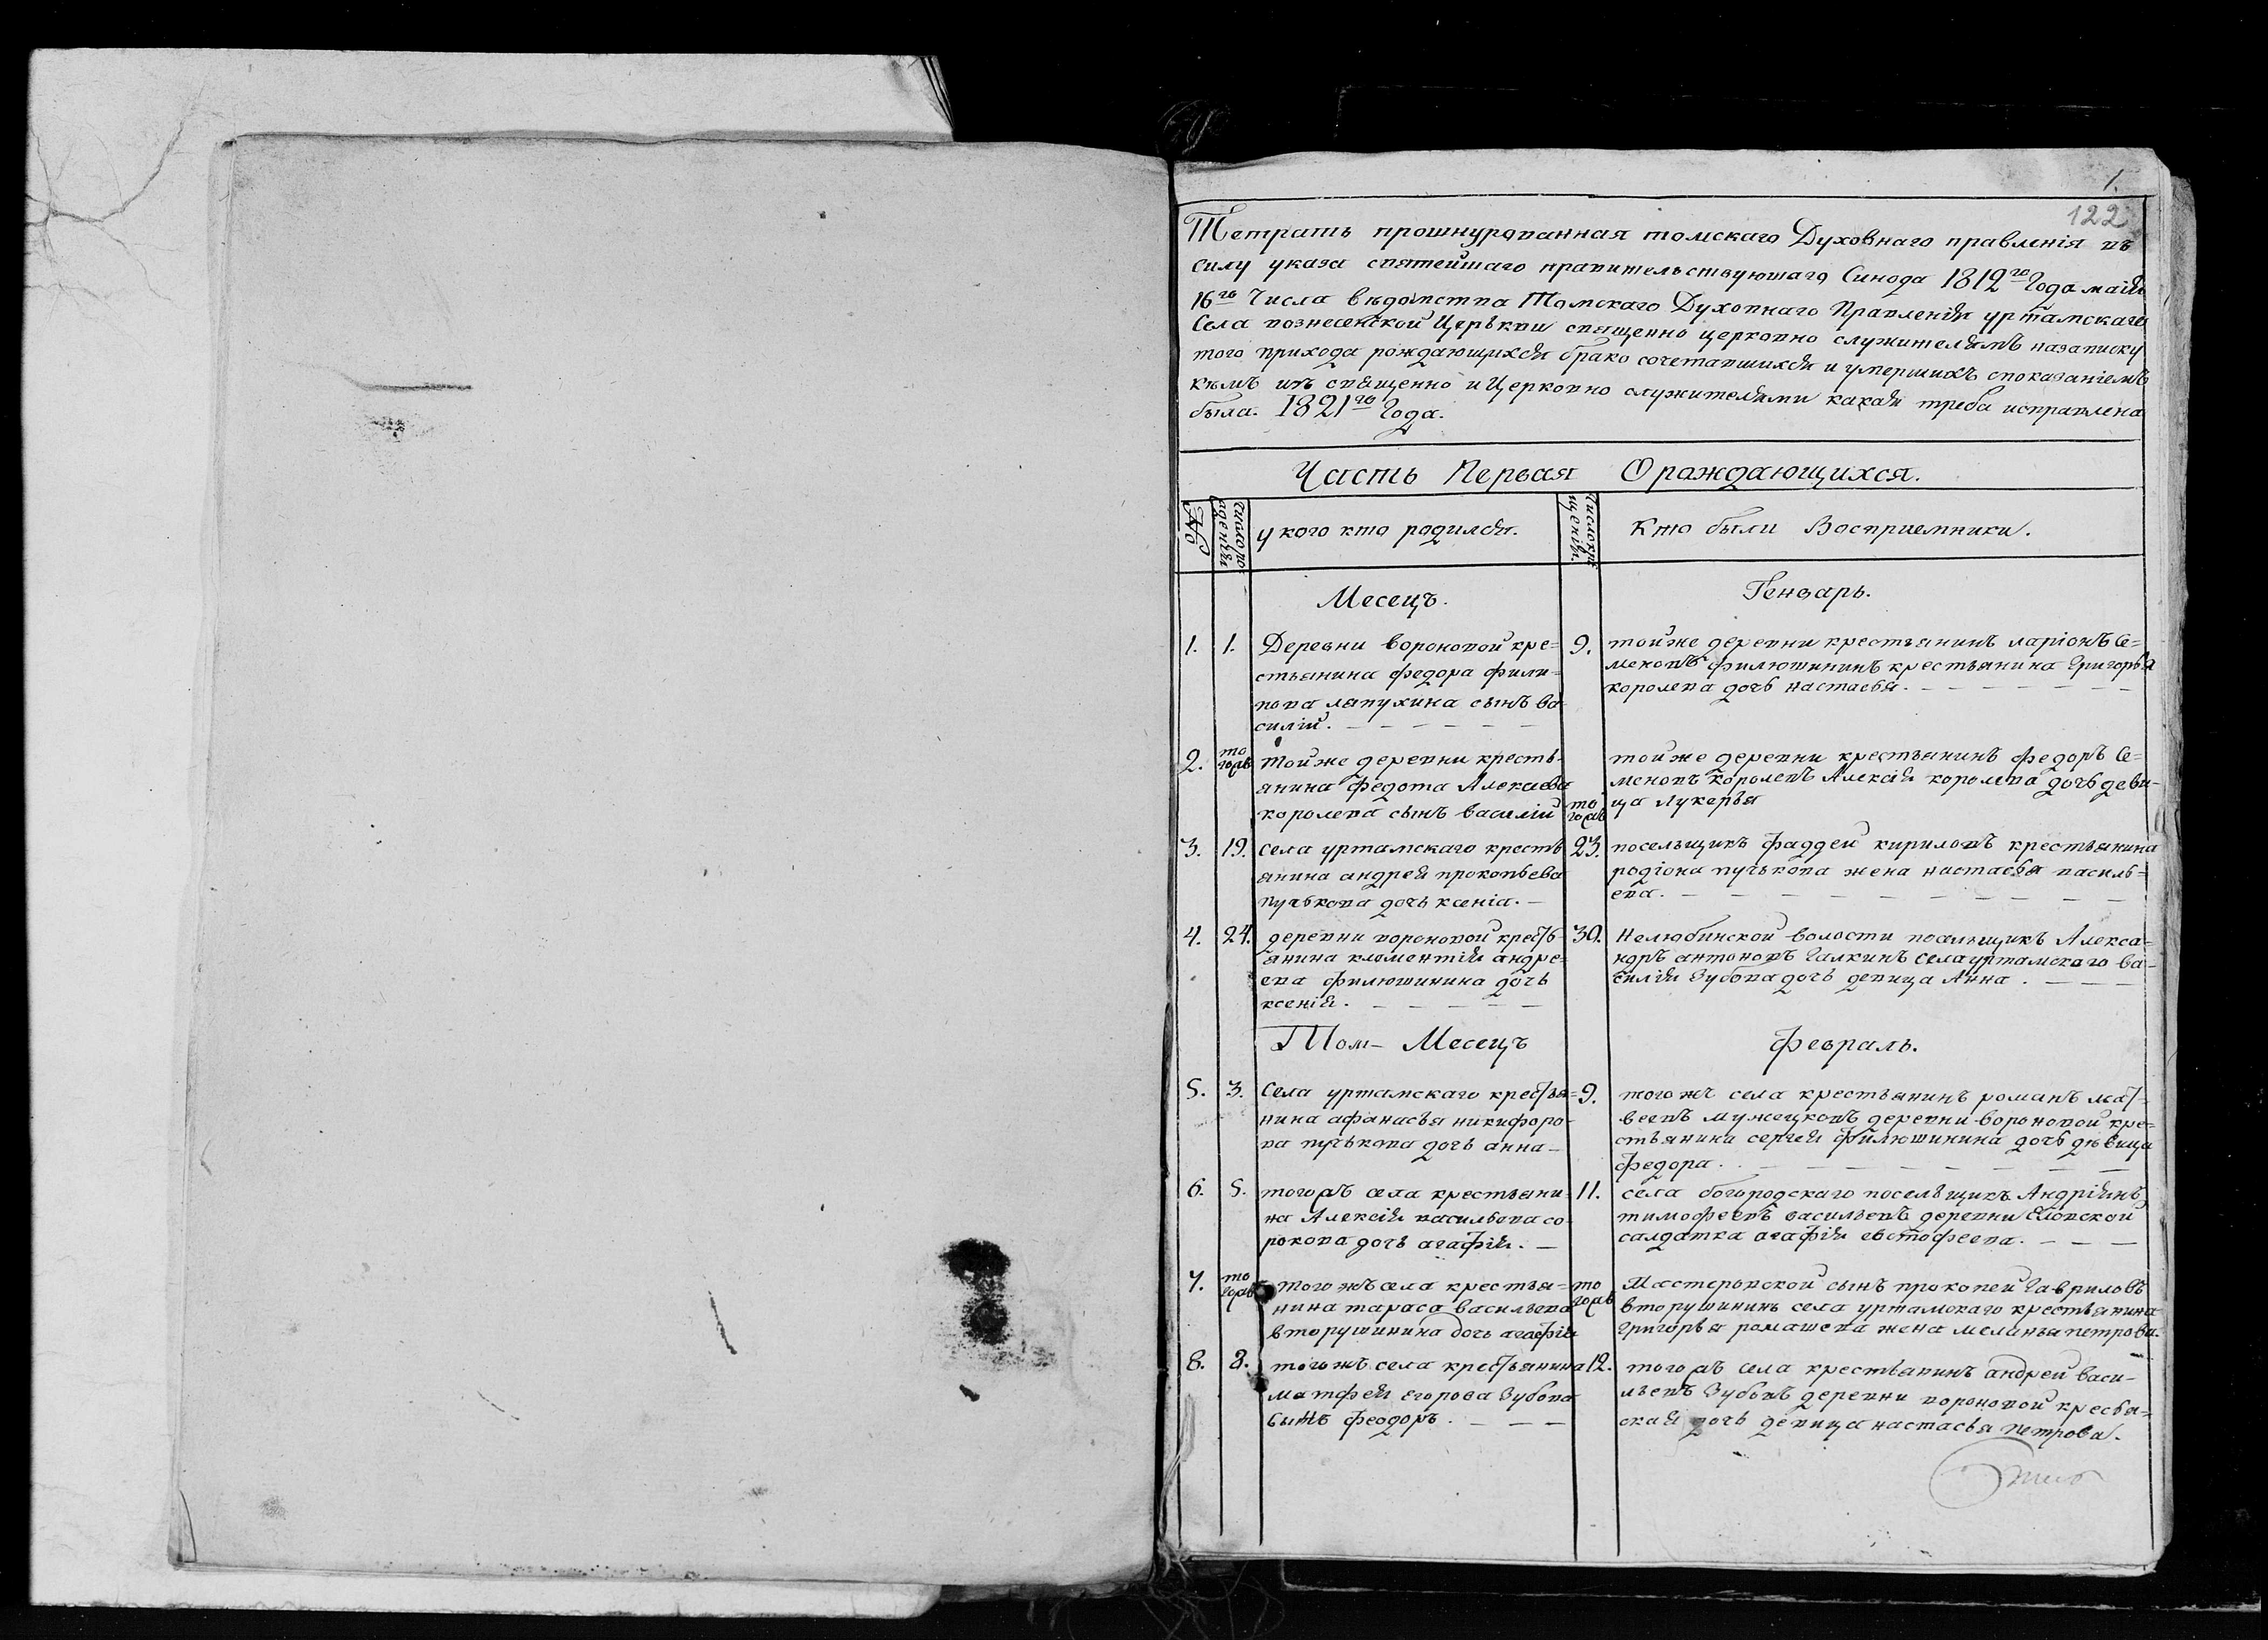 1.
122
Тетрать прошнурованная томскаго Духовнаго правленія въ
силу указа святейшаго правительствующаго Синода 1812го Года маія
16го Числа вѣдомства Томскаго Духовнаго Правленія уртамскаго
Села вознесенской Церькви священно церковно служителямъ на записку
того прихода рождающихся брако сочетавшихся и умершихъ споказаніемъ
кѣмъ изъ священно и Церковно служителями какая треба исправлена
была. 1821го Года.
Часть Первая О раждающихся.
№
число рожденія
у кого кто родился.
число крещенія.
Кто были Восприемники.
Месецъ. Генварь.
1. 1. Деревни вороновой кре=
стьянина федора фили=
пова лапухина сынъ ва
силій.
9. тойже деревни крестьянинъ ларіонъ Се=
меновъ филюшининъ крестьянина Григорья
королева дочь настасья.
2. того жъ тойже деревни кресть-
янина Федота Алексаева
королева сынъ василій
того жъ тойже деревни крестьянинъ федоръ Се=
меновъ королевъ Алексія королева дочь деви-
ца лукерья
3. 19. села уртамскаго кресть
янина андрея прокопьева
пучькова дочь ксенія.
23. посельщикъ фаддеи кириловъ крестьянина
родіона пучькова жена настасья василь=
ева.
4. 24. деревни вороновой кресть-
янина клементія андре=
ева филюшинина дочь
ксенія.
30. Нелюбинской волости посельщикъ Алекса=
ндръ антоновъ Галкинъ села уртамского ва=
силія Зубова дочь девица Анна.
Том- Месецъ февраль.
5. 3. Села уртамскаго крестья=
нина афанасья никифоро-
ва пучькова дочь анна-
9. того жъ села крестьянинъ романъ мат-
веевъ мужецковъ деревни вороновой кре=
стьянина сергея филюшинина дочь дѣвица
федора.
6. 5. того жъ села крестьяни=
на Алексія васильева со
рокова дочь агафія.
11. села богородскаго посельщикъ Андріянъ
тимофеевъ васильевъ деревни Еловской
салдатка агафія евстафеева.
7. того жъ того жъ села крестья=
нина тараса васильева
вторушинина дочь агафія
того жъ Мастеровской сынъ прокопеи Гавриловъ
вторушининъ села уртамскаго крестьянина
григорья ромашева жена меланья петрова.
8. 8. того жъ села крестьянина
матфея егорова Зубова
сынъ феодоръ.
12. того жъ села крестьянинъ андреи васи-
льевъ Зубовъ деревни вороновой кресья=
ская дочь девица настасья петрова.